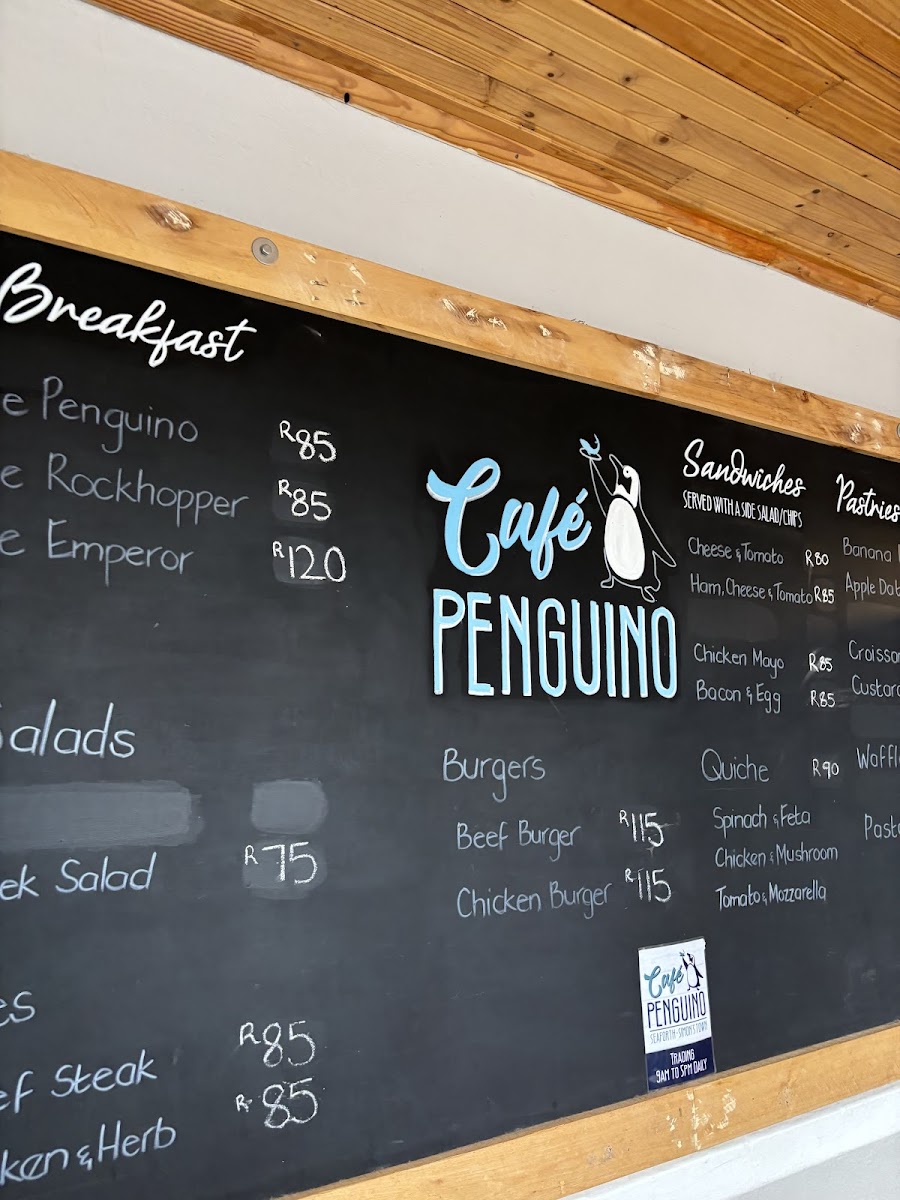 Breakfast
e Penguino R85
e Rockhopper R85
e Emperor R120
Salads
ek Salad R75
es
ef Steak R85
ken & Herb R85
Café
PENGUINO
Burgers
Beef Burger R115
Chicken Burger R115
Sandwiches
SERVED WITH A SIDE SALAD/CHIPS
Cheese & Tomato R80
Ham, Cheese & Tomato R85
Chicken Mayo R85
Bacon & Egg R85
Quiche R90
Spinach & Feta
Chicken & Mushroom
Tomato & Mozzarella
Pastries
Banana
Apple Dat
Croissan
Custard
Waffl
Past
Café
PENGUINO
SEAFORTH-SIMON'S TOWN
TRADING
9AM TO 5PM DAILY